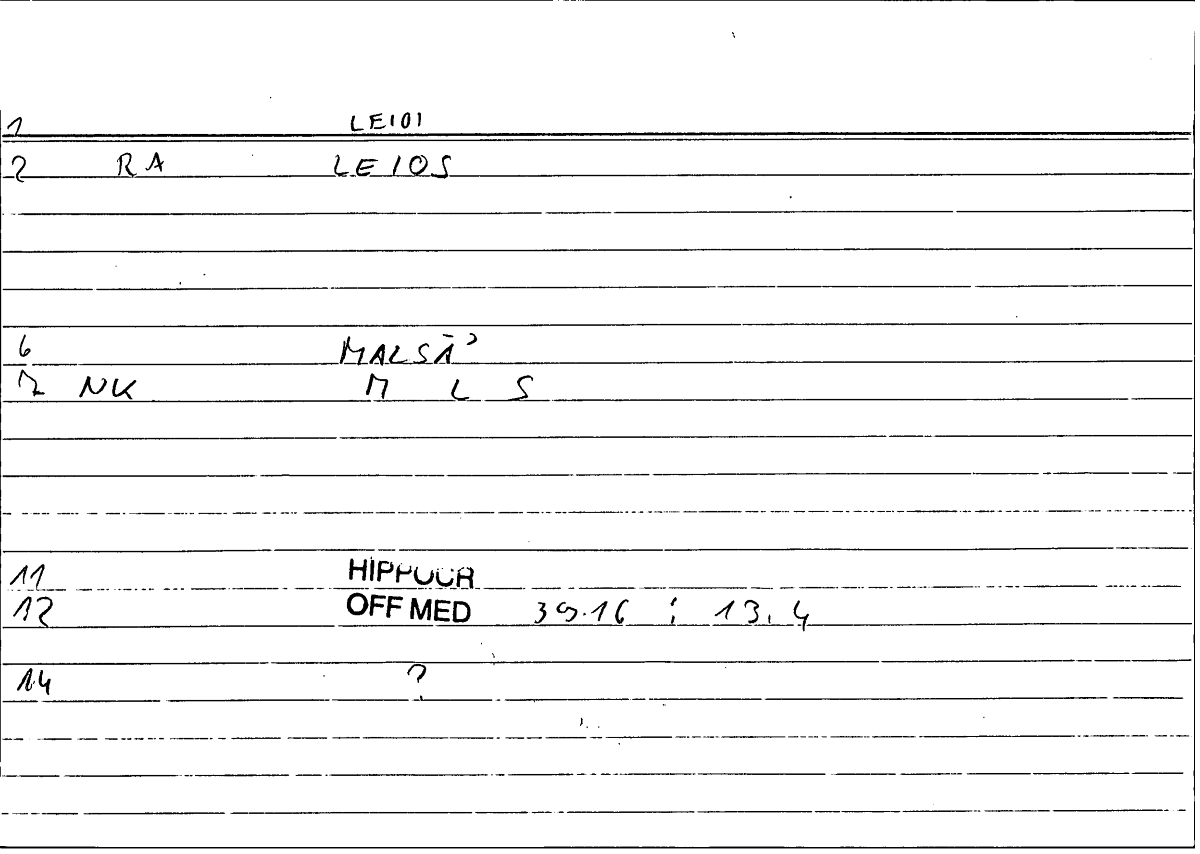 1 LEIOI
2 RA LEIOS
6 MALSĀʾ
7 NK M L S
11 HIPPOCR
12 OFF MED 39.16 ; 13.4
14 ?